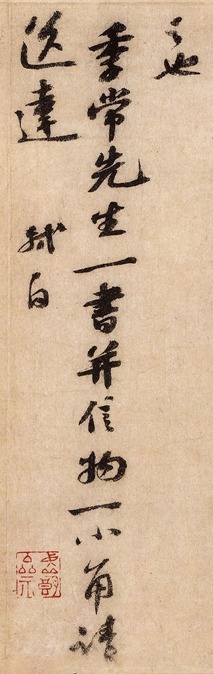 之也
季常先生一書并信物一小角請
送達
軾白